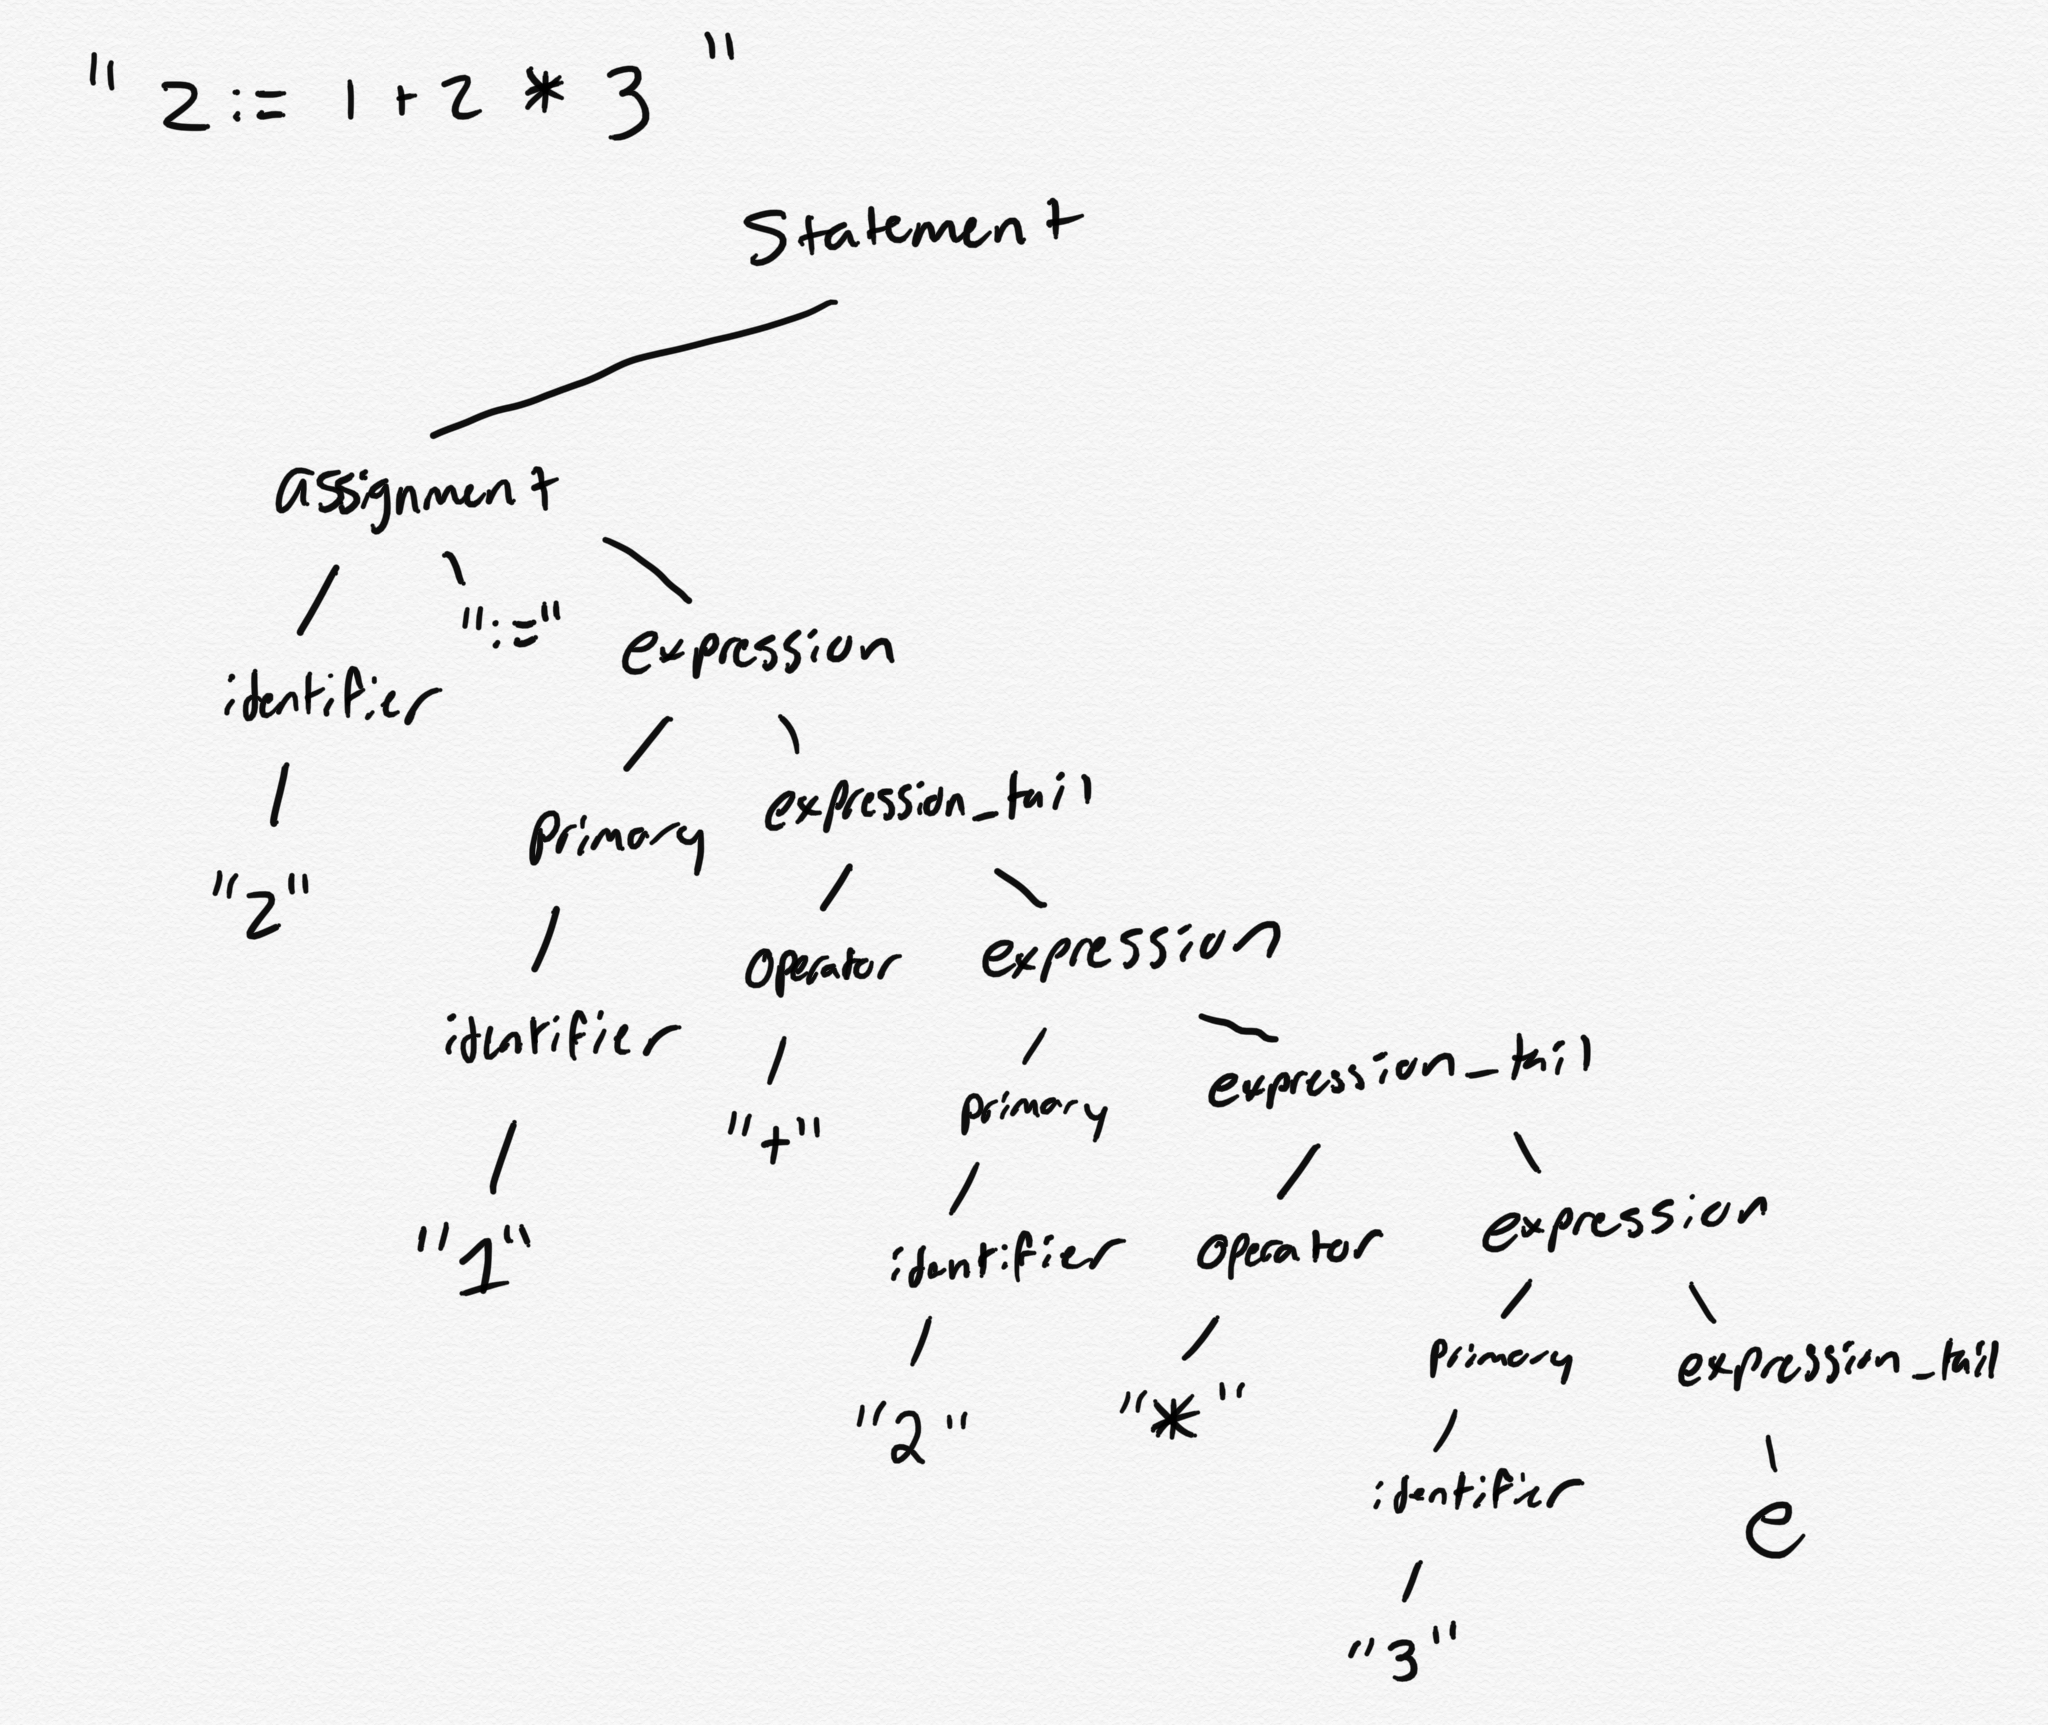 "2 := 1 + 2 * 3"
Statement
assignment
identifier ":=" expression
"2" primary expression_tail
identifier operator expression
"1" "+" primary expression_tail
identifier operator expression
"2" "*" primary expression_tail
identifier e
"3"